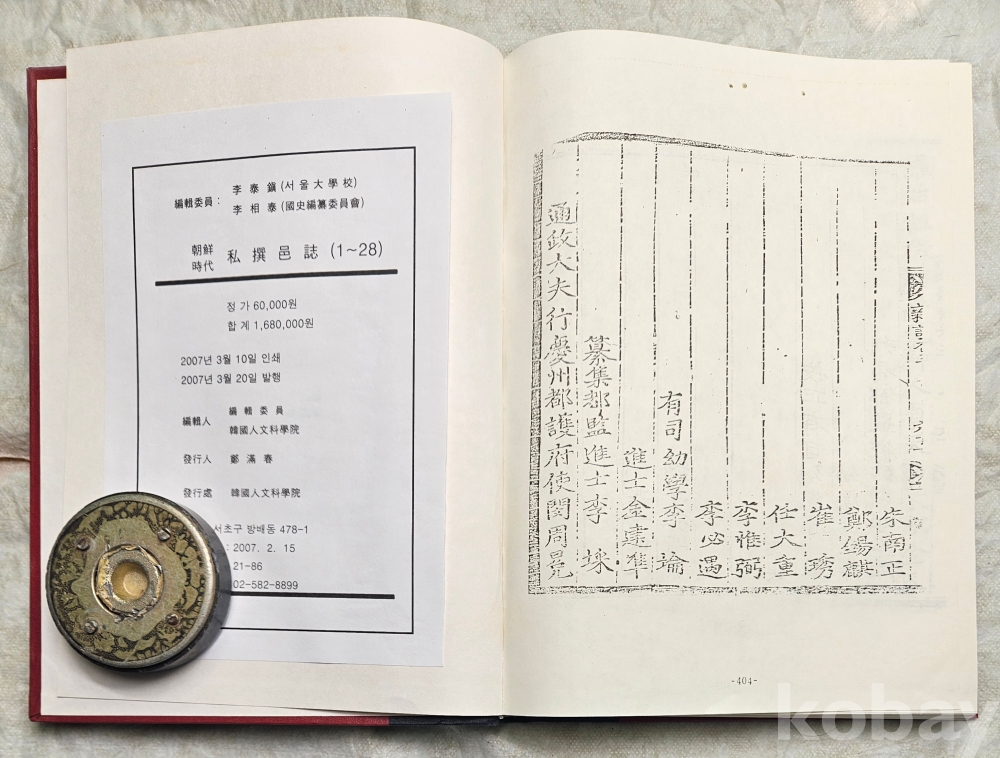 編輯委員 :
李 泰 鎭 (서 울 大 學 校)
李 相 泰 (國史編纂委員會)
朝鮮
時代
私 撰 邑 誌 (1~28)
정 가 60,000원
합 계 1,680,000원
2007년 3월 10일 인쇄
2007년 3월 20일 발행
編輯人
編 輯 委 員
韓國人文科學院
發行人 鄭 滿 春
發行處 韓國人文科學院
서초구 방배동 478-1
: 2007. 2. 15
21-86
02-582-8899
朱南正
鄭錫麒
崔琇
任大重
李惟弼
李必遇
有司幼學李 論
進士金建準
纂集都監進士李 埰
通政大夫行慶州都護府使閔周冕
-404-
kobay